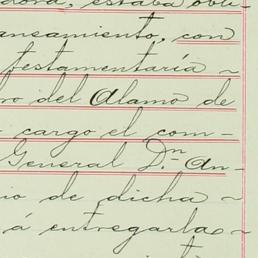 dora, estaba obli-
ansamiento, con
testamentaría ~
ro del Alamo de
cargo el com-
General Dn An-
io de dicha -
á entregarla -